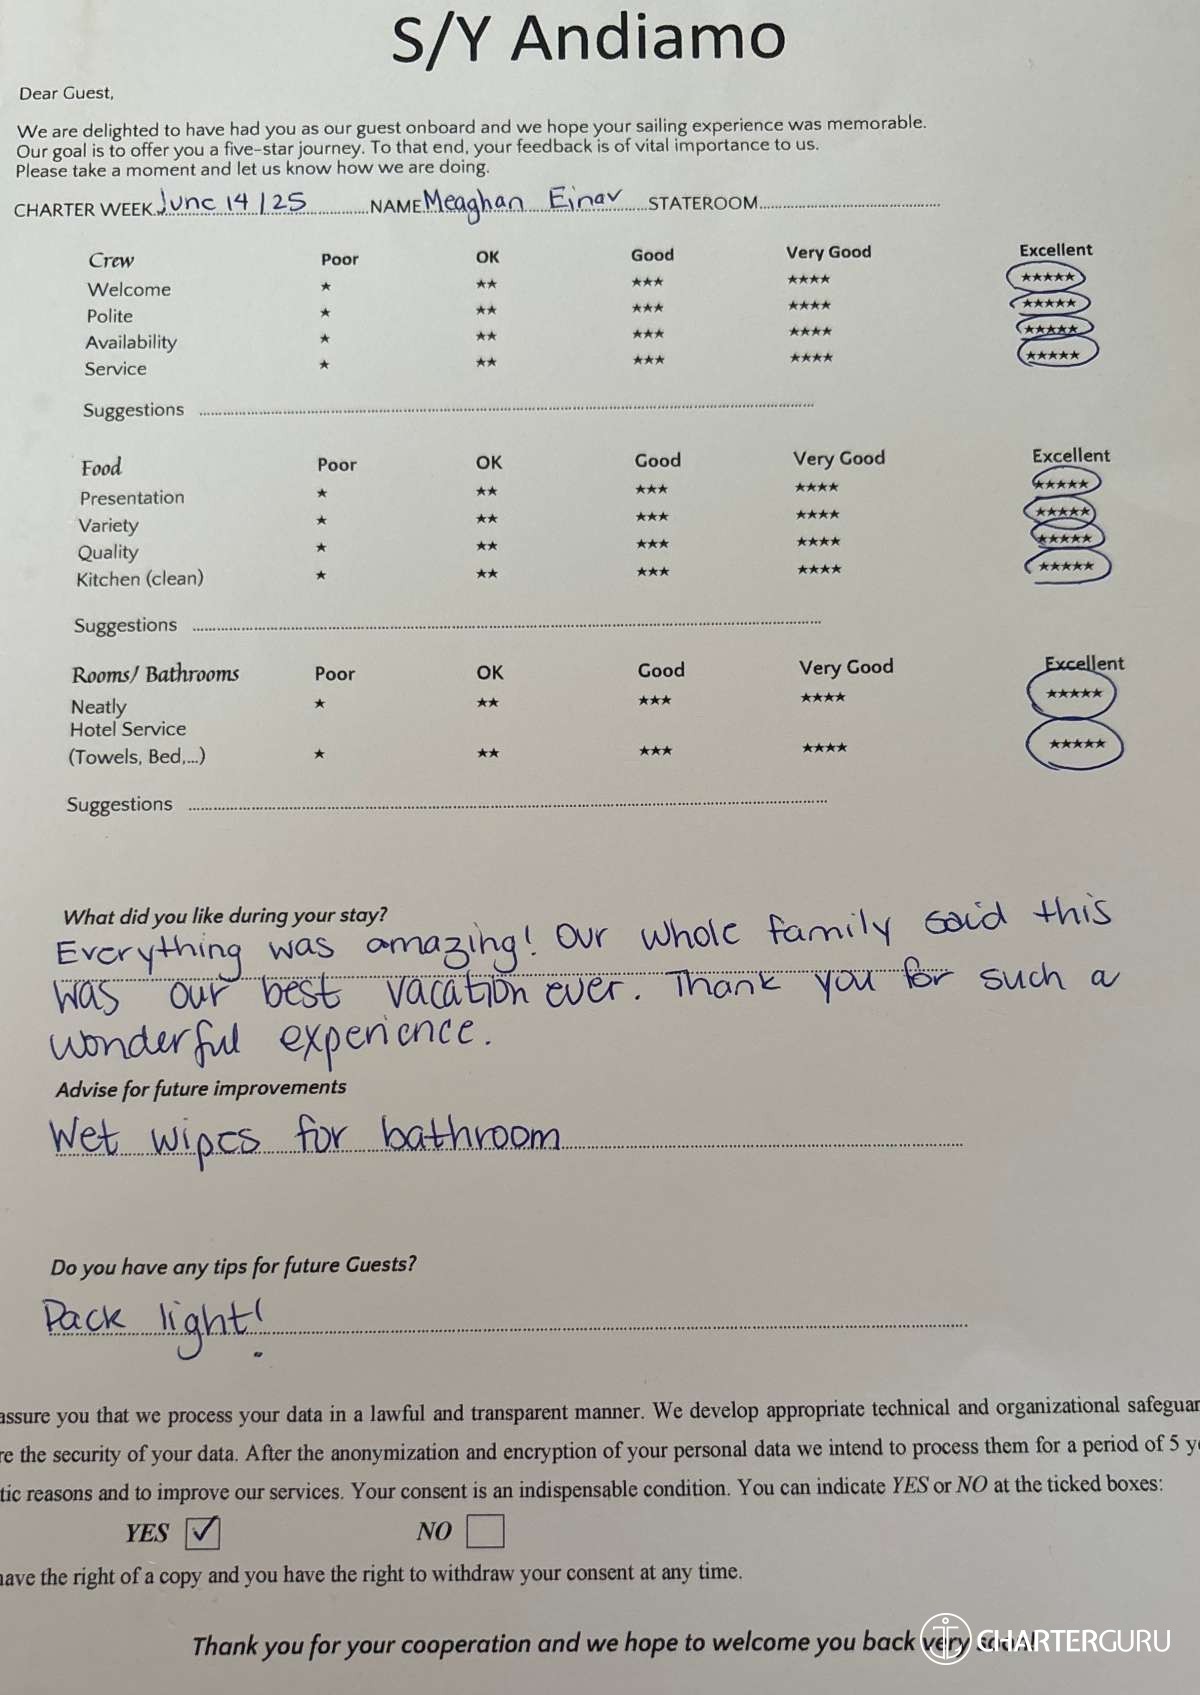 S/Y Andiamo
Dear Guest,
We are delighted to have had you as our guest onboard and we hope your sailing experience was memorable.
Our goal is to offer you a five-star journey. To that end, your feedback is of vital importance to us.
Please take a moment and let us know how we are doing.
CHARTER WEEK June 14/25 NAME Meaghan Einav STATEROOM
Crew Poor OK Good Very Good Excellent
Welcome ★ ★★ ★★★ ★★★★ ★★★★★
Polite ★ ★★ ★★★ ★★★★ ★★★★★
Availability ★ ★★ ★★★ ★★★★ ★★★★★
Service ★ ★★ ★★★ ★★★★ ★★★★★
Suggestions
Food Poor OK Good Very Good Excellent
Presentation ★ ★★ ★★★ ★★★★ ★★★★★
Variety ★ ★★ ★★★ ★★★★ ★★★★★
Quality ★ ★★ ★★★ ★★★★ ★★★★★
Kitchen (clean) ★ ★★ ★★★ ★★★★ ★★★★★
Suggestions
Rooms/ Bathrooms Poor OK Good Very Good Excellent
Neatly ★ ★★ ★★★ ★★★★ ★★★★★
Hotel Service
(Towels, Bed,...) ★ ★★ ★★★ ★★★★ ★★★★★
Suggestions
What did you like during your stay?
Everything was amazing! Our whole family said this
was our best vacation ever. Thank you for such a
wonderful experience.
Advise for future improvements
Wet wipes for bathroom
Do you have any tips for future Guests?
Pack light!
assure you that we process your data in a lawful and transparent manner. We develop appropriate technical and organizational
the security of your data. After the anonymization and encryption of your personal data we intend to process them for a period of 5
reasons and to improve our services. Your consent is an indispensable condition. You can indicate YES or NO at the ticked boxes:
YES ✓ NO
have the right of a copy and you have the right to withdraw your consent at any time.
Thank you for your cooperation and we hope to welcome you back very soon!
CHARTERGURU